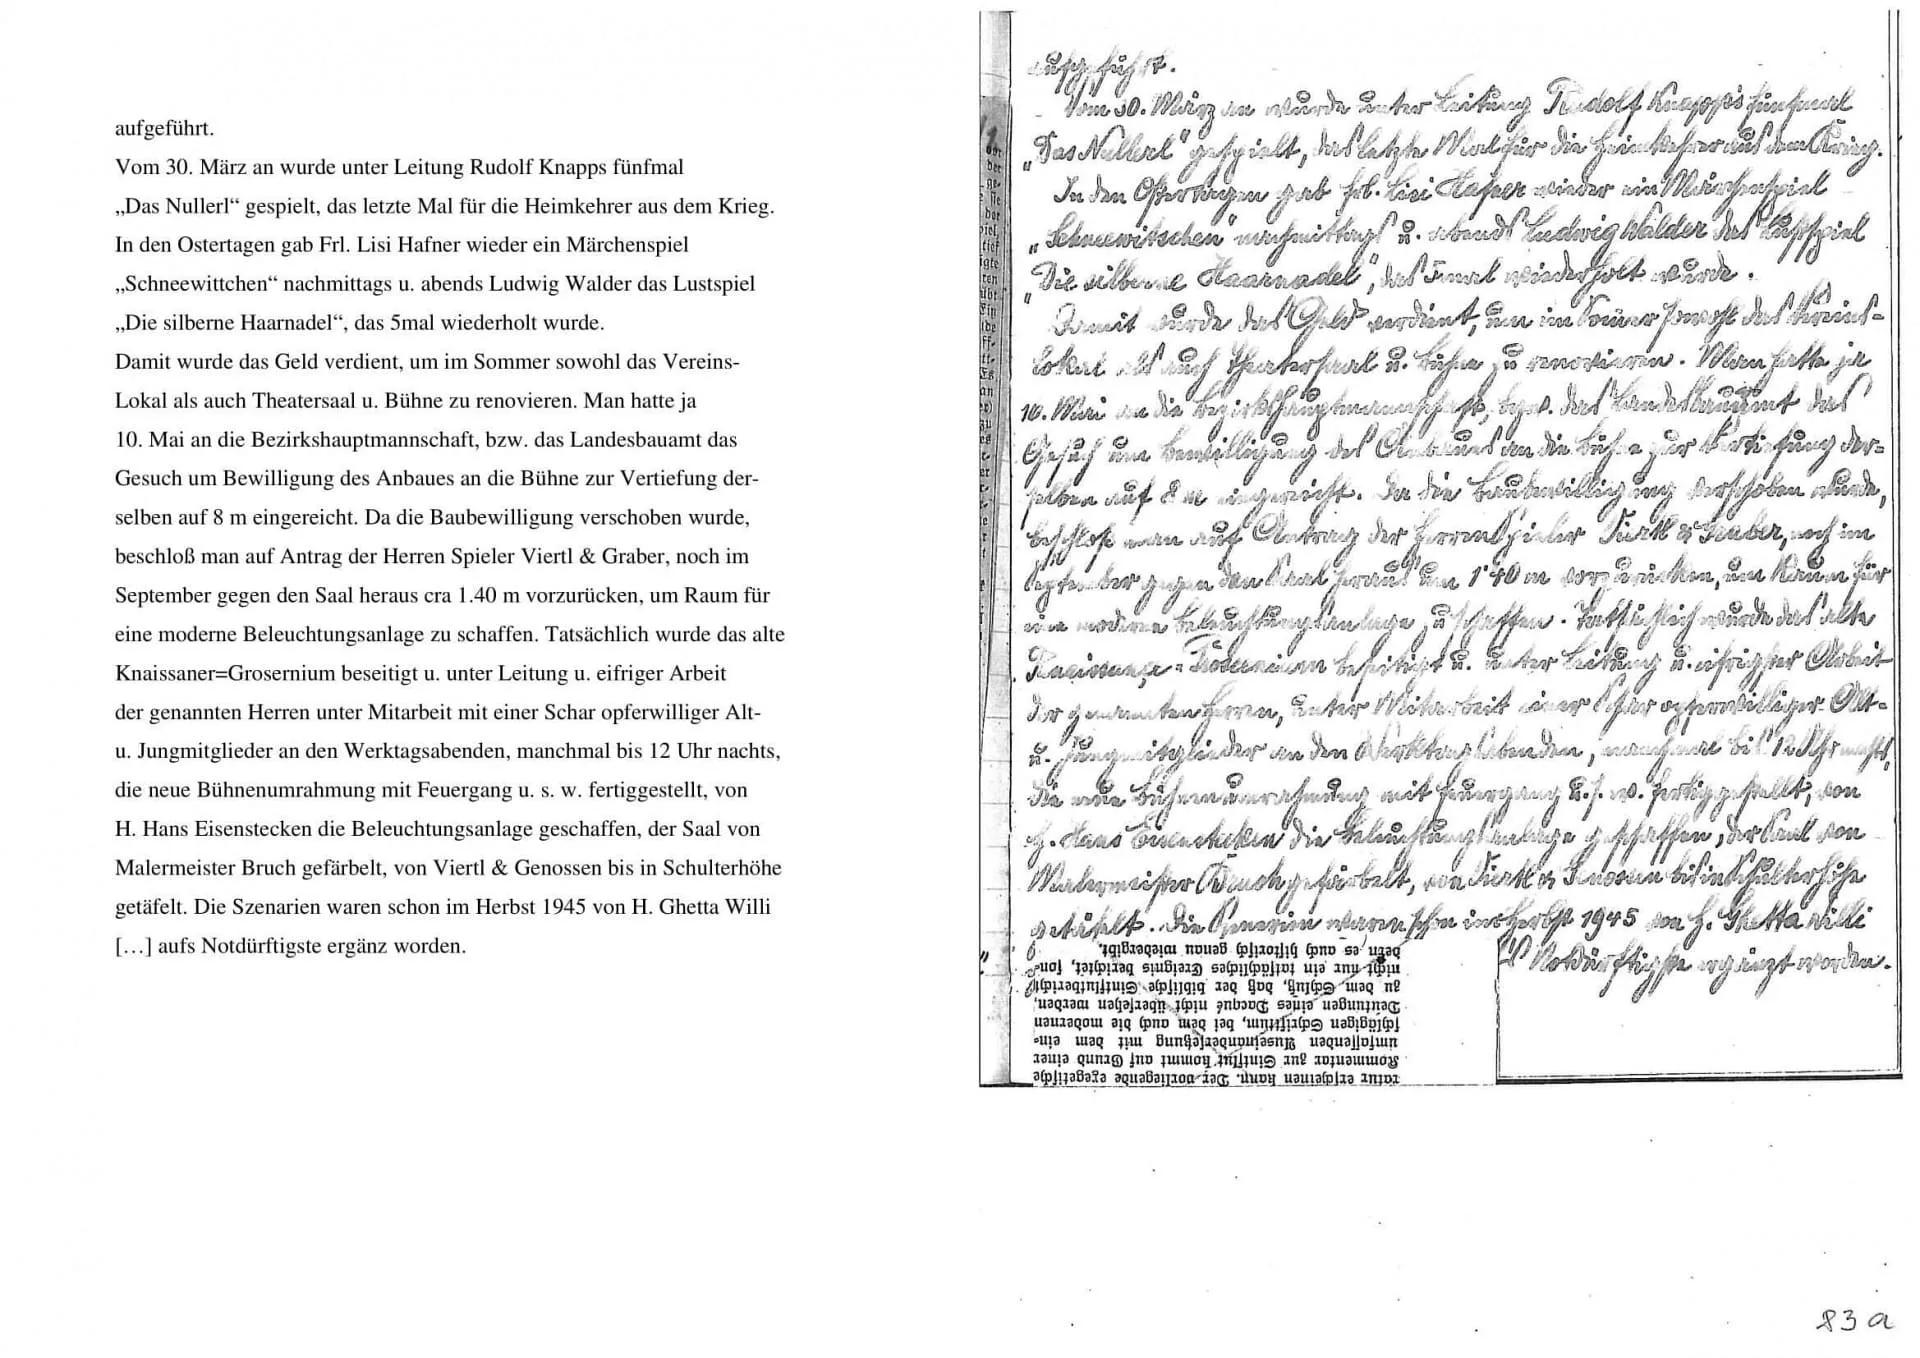 aufgeführt.
Vom 30. März an wurde unter Leitung Rudolf Knapps fünfmal
„Das Nullerl“ gespielt, das letzte Mal für die Heimkehrer aus dem Krieg.
In den Ostertagen gab Frl. Lisi Hafner wieder ein Märchenspiel
„Schneewittchen“ nachmittags u. abends Ludwig Walder das Lustspiel
„Die silberne Haarnadel“, das 5mal wiederholt wurde.
Damit wurde das Geld verdient, um im Sommer sowohl das Vereins-
Lokal als auch Theatersaal u. Bühne zu renovieren. Man hatte ja
10. Mai an die Bezirkshauptmannschaft, bzw. das Landesbauamt das
Gesuch um Bewilligung des Anbaues an die Bühne zur Vertiefung der-
selben auf 8 m eingereicht. Da die Baubewilligung verschoben wurde,
beschloß man auf Antrag der Herren Spieler Viertl & Graber, noch im
September gegen den Saal heraus cra 1.40 m vorzurücken, um Raum für
eine moderne Beleuchtungsanlage zu schaffen. Tatsächlich wurde das alte
Knaissaner=Grosernium beseitigt u. unter Leitung u. eifriger Arbeit
der genannten Herren unter Mitarbeit mit einer Schar opferwilliger Alt-
u. Jungmitglieder an den Werktagsabenden, manchmal bis 12 Uhr nachts,
die neue Bühnenumrahmung mit Feuergang u. s. w. fertiggestellt, von
H. Hans Eisenstecken die Beleuchtungsanlage geschaffen, der Saal von
Malermeister Bruch gefärbelt, von Viertl & Genossen bis in Schulterhöhe
getäfelt. Die Szenarien waren schon im Herbst 1945 von H. Ghetta Willi
[…] aufs Notdürftigste ergänz worden.
aufgeführt.
Vom 30. März an wurde unter Leitung Rudolf Knapp's fünfmal
„Das Nullerl" gespielt, das letzte Mal für die Heimkehrer aus dem Krieg.
In den Ostertagen gab Frl. Lisi Hafner wieder ein Märchenspiel
„Schneewitchen" nachmittags u. abends Ludwig Walder das Lustspiel
„Die silberne Haarnadel", das 5mal wiederholt wurde.
Damit wurde das Geld verdient, um im Sommer sowohl das Vereins-
lokal als auch Theatersaal u. Bühne zu renovieren. Man hatte ja
10. Mai an die Bezirkshauptmannschaft, bzw. das Landesbauamt das
Gesuch um Bewilligung des Anbaues an die Bühne zur Vertiefung der-
selben auf 8 m eingereicht. Da die Baubewilligung verschoben wurde,
beschloß man auf Antrag der Herren Spieler Viertl & Gruber, noch im
September gegen den Saal heraus um 1'40 m vorzurücken, um Raum für
eine moderne Beleuchtungsanlage zu schaffen. Tatsächlich wurde das alte
beseitigt u. unter Leitung u. eifrigster Arbeit
der genannten Herren, unter Mitarbeit einer Schar opferwilliger Alt-
u. Jungmitglieder an den Werktagsabenden, manchmal bis 12 Uhr nachts,
die neue Bühnenumrahmung mit Feuergang u. s. w. fertiggestellt, von
H. Hans Eisenstecken die Beleuchtungsanlage geschaffen, der Saal von
Malermeister gefärbelt, von Viertl & Genossen bis in Schulterhöhe
getäfelt. Die Szenerien waren schon im Herbst 1945 von H. Ghetta Willi
Notdürftigste ergänzt worden.
ratur erscheinen kann. Der vorliegende exegetische
Kommentar zur Sintflut kommt auf Grund einer
umfassenden Auseinandersetzung mit dem ein-
schlägigen Schrifttum, bei dem auch die modernen
Deutungen eines Dacqué nicht übersehen werden,
zu dem Schluß, daß der biblische Sintflutbericht
nicht nur ein tatsächliches Ereignis berichtet, son-
dern es auch historisch genau wiedergibt.
83 a